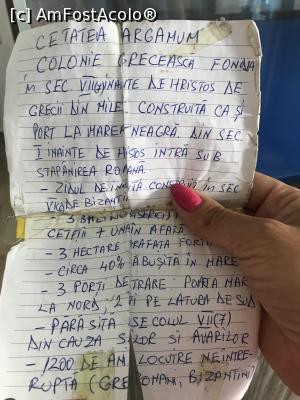 [c] AmFostAcolo®
CETATEA ARGAMUM
COLONIE GRECEASCĂ FONDA
ÎN SEC. VII ÎNAINTE DE HRISTOS DE
GRECII DIN MILET. CONSTRUITĂ CA ȘI
PORT LA MAREA NEAGRĂ. DIN SEC
I INAINTE DE INTRĂ SUB
STĂPÂNIREA ROMANĂ.
- ZIDUL DE ÎN SEC
DE BIZANTIN
- 3
CETĂȚII + UNA ÎN AFARĂ
- 3 HECTARE
- CIRCA 40% ÎN MARE
- 3 PORȚI DE POARTA MARE
LA NORD, 2 PE LATURA DE SUD
- PĂRĂSITĂ SECOLUL VII(7)
DIN CAUZA ȘI AVARILOR
- 1200 DE ANI LOCUIRE NEÎNTRE-
RUPTĂ ( BIZANTINI)